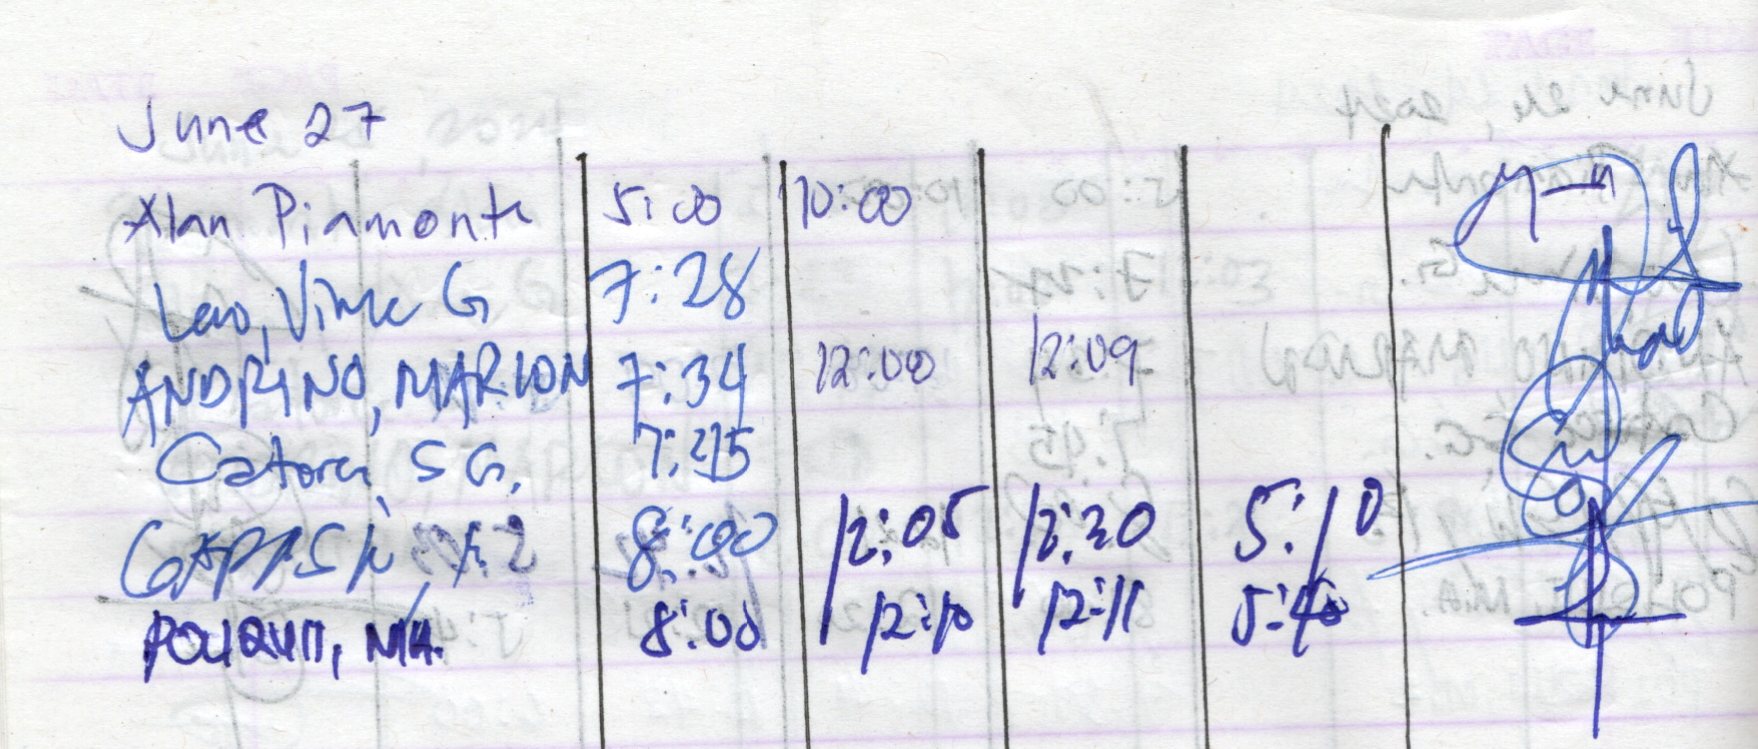 June 27
Alan Piamonte 5:00 10:00
Lao, Vince G 7:28
ANDRINO, MARION 7:34 12:00 12:09
Catora, S G. 7:45
8:00 12:05 12:30 5:10
POLIQUIT, MA. 8:00 12:10 12:11 5:40